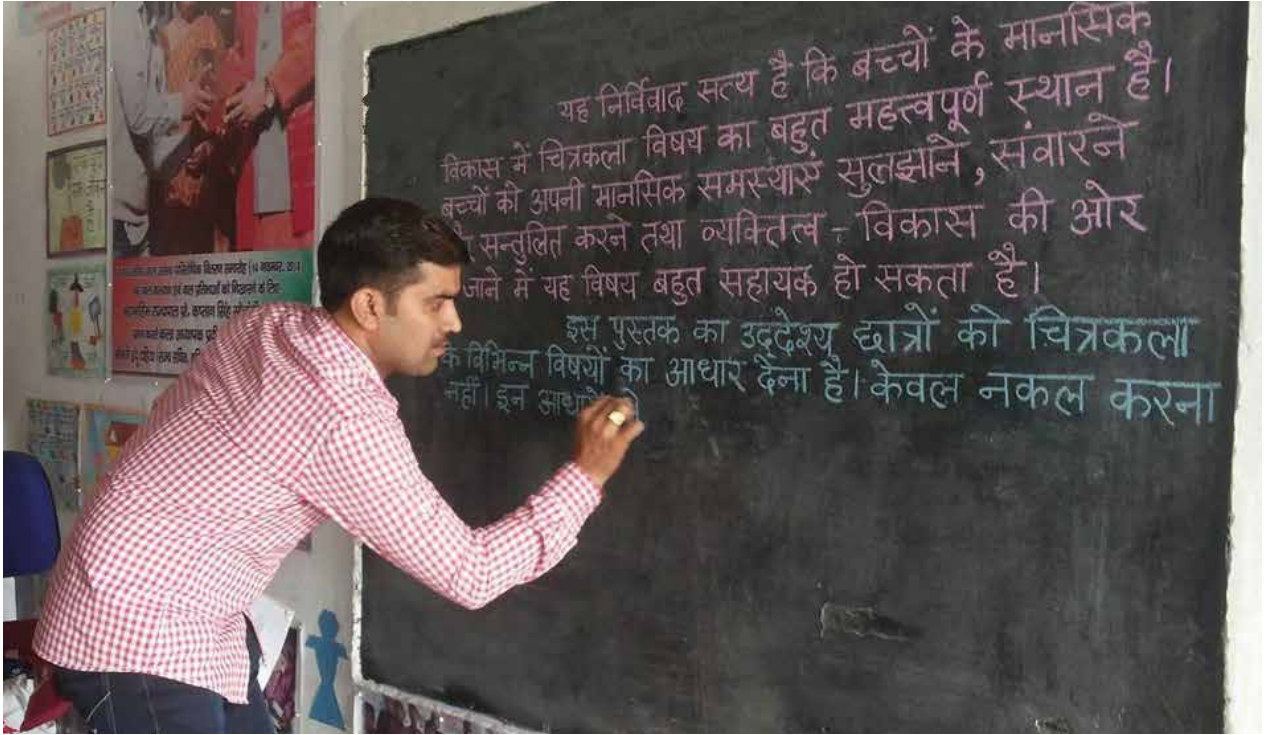 यह निर्विवाद सत्य है कि बच्चों के मानसिक
विकास में चित्रकला विषय का बहुत महत्वपूर्ण स्थान है।
बच्चों की अपनी मानसिक समस्याएं सुलझाने, संवारने
सन्तुलित करने तथा व्यक्तित्व - विकास की ओर
जाने में यह विषय बहुत सहायक हो सकता है।
इस पुस्तक का उद्देश्य छात्रों को चित्रकला
के विभिन्न विषयों का आधार देना है। केवल नकल करना
नहीं। इन